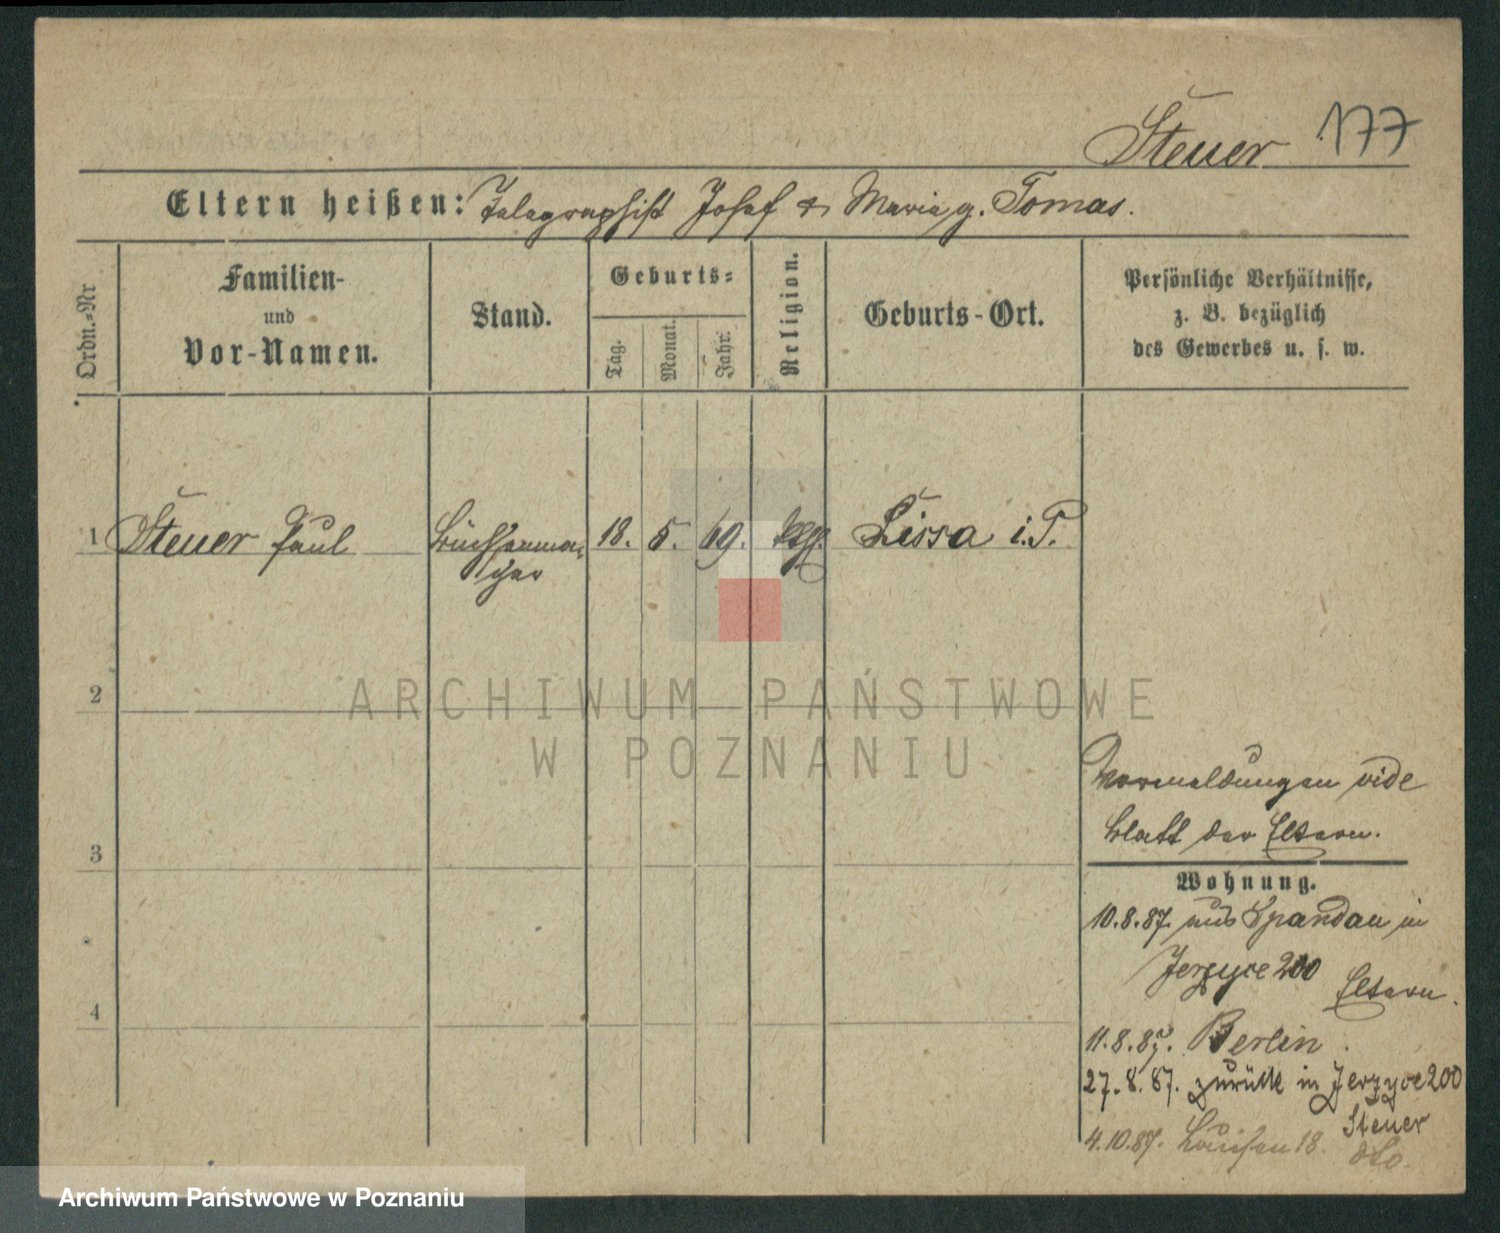 Steuer 177
Eltern heißen: Telegraphist Josef & Maria g. Tomas.
Ordn.-Nr
Familien-
und
Vor-Namen.
Stand.
Geburts-
Tag.
Monat.
Jahr.
Religion.
Geburts-Ort.
Persönliche Verhältnisse,
z. B. bezüglich
des Gewerbes u. s. w.
1 Steuer Paul Büchsenma- 18. 5. 69. Lissa i. P.
cher
2
ARCHIWUM PAŃSTWOWE
W POZNANIU
Vormeldungen vide
Blatt der Eltern.
3
Wohnung.
10.8.87. aus Spandau in
Jerzyce 200
Eltern.
4
11.8.87. Berlin.
27.8.87. zurück in Jerzyce 200
Steuer
4.10.87. Louisen 18.
dto
Archiwum Państwowe w Poznaniu